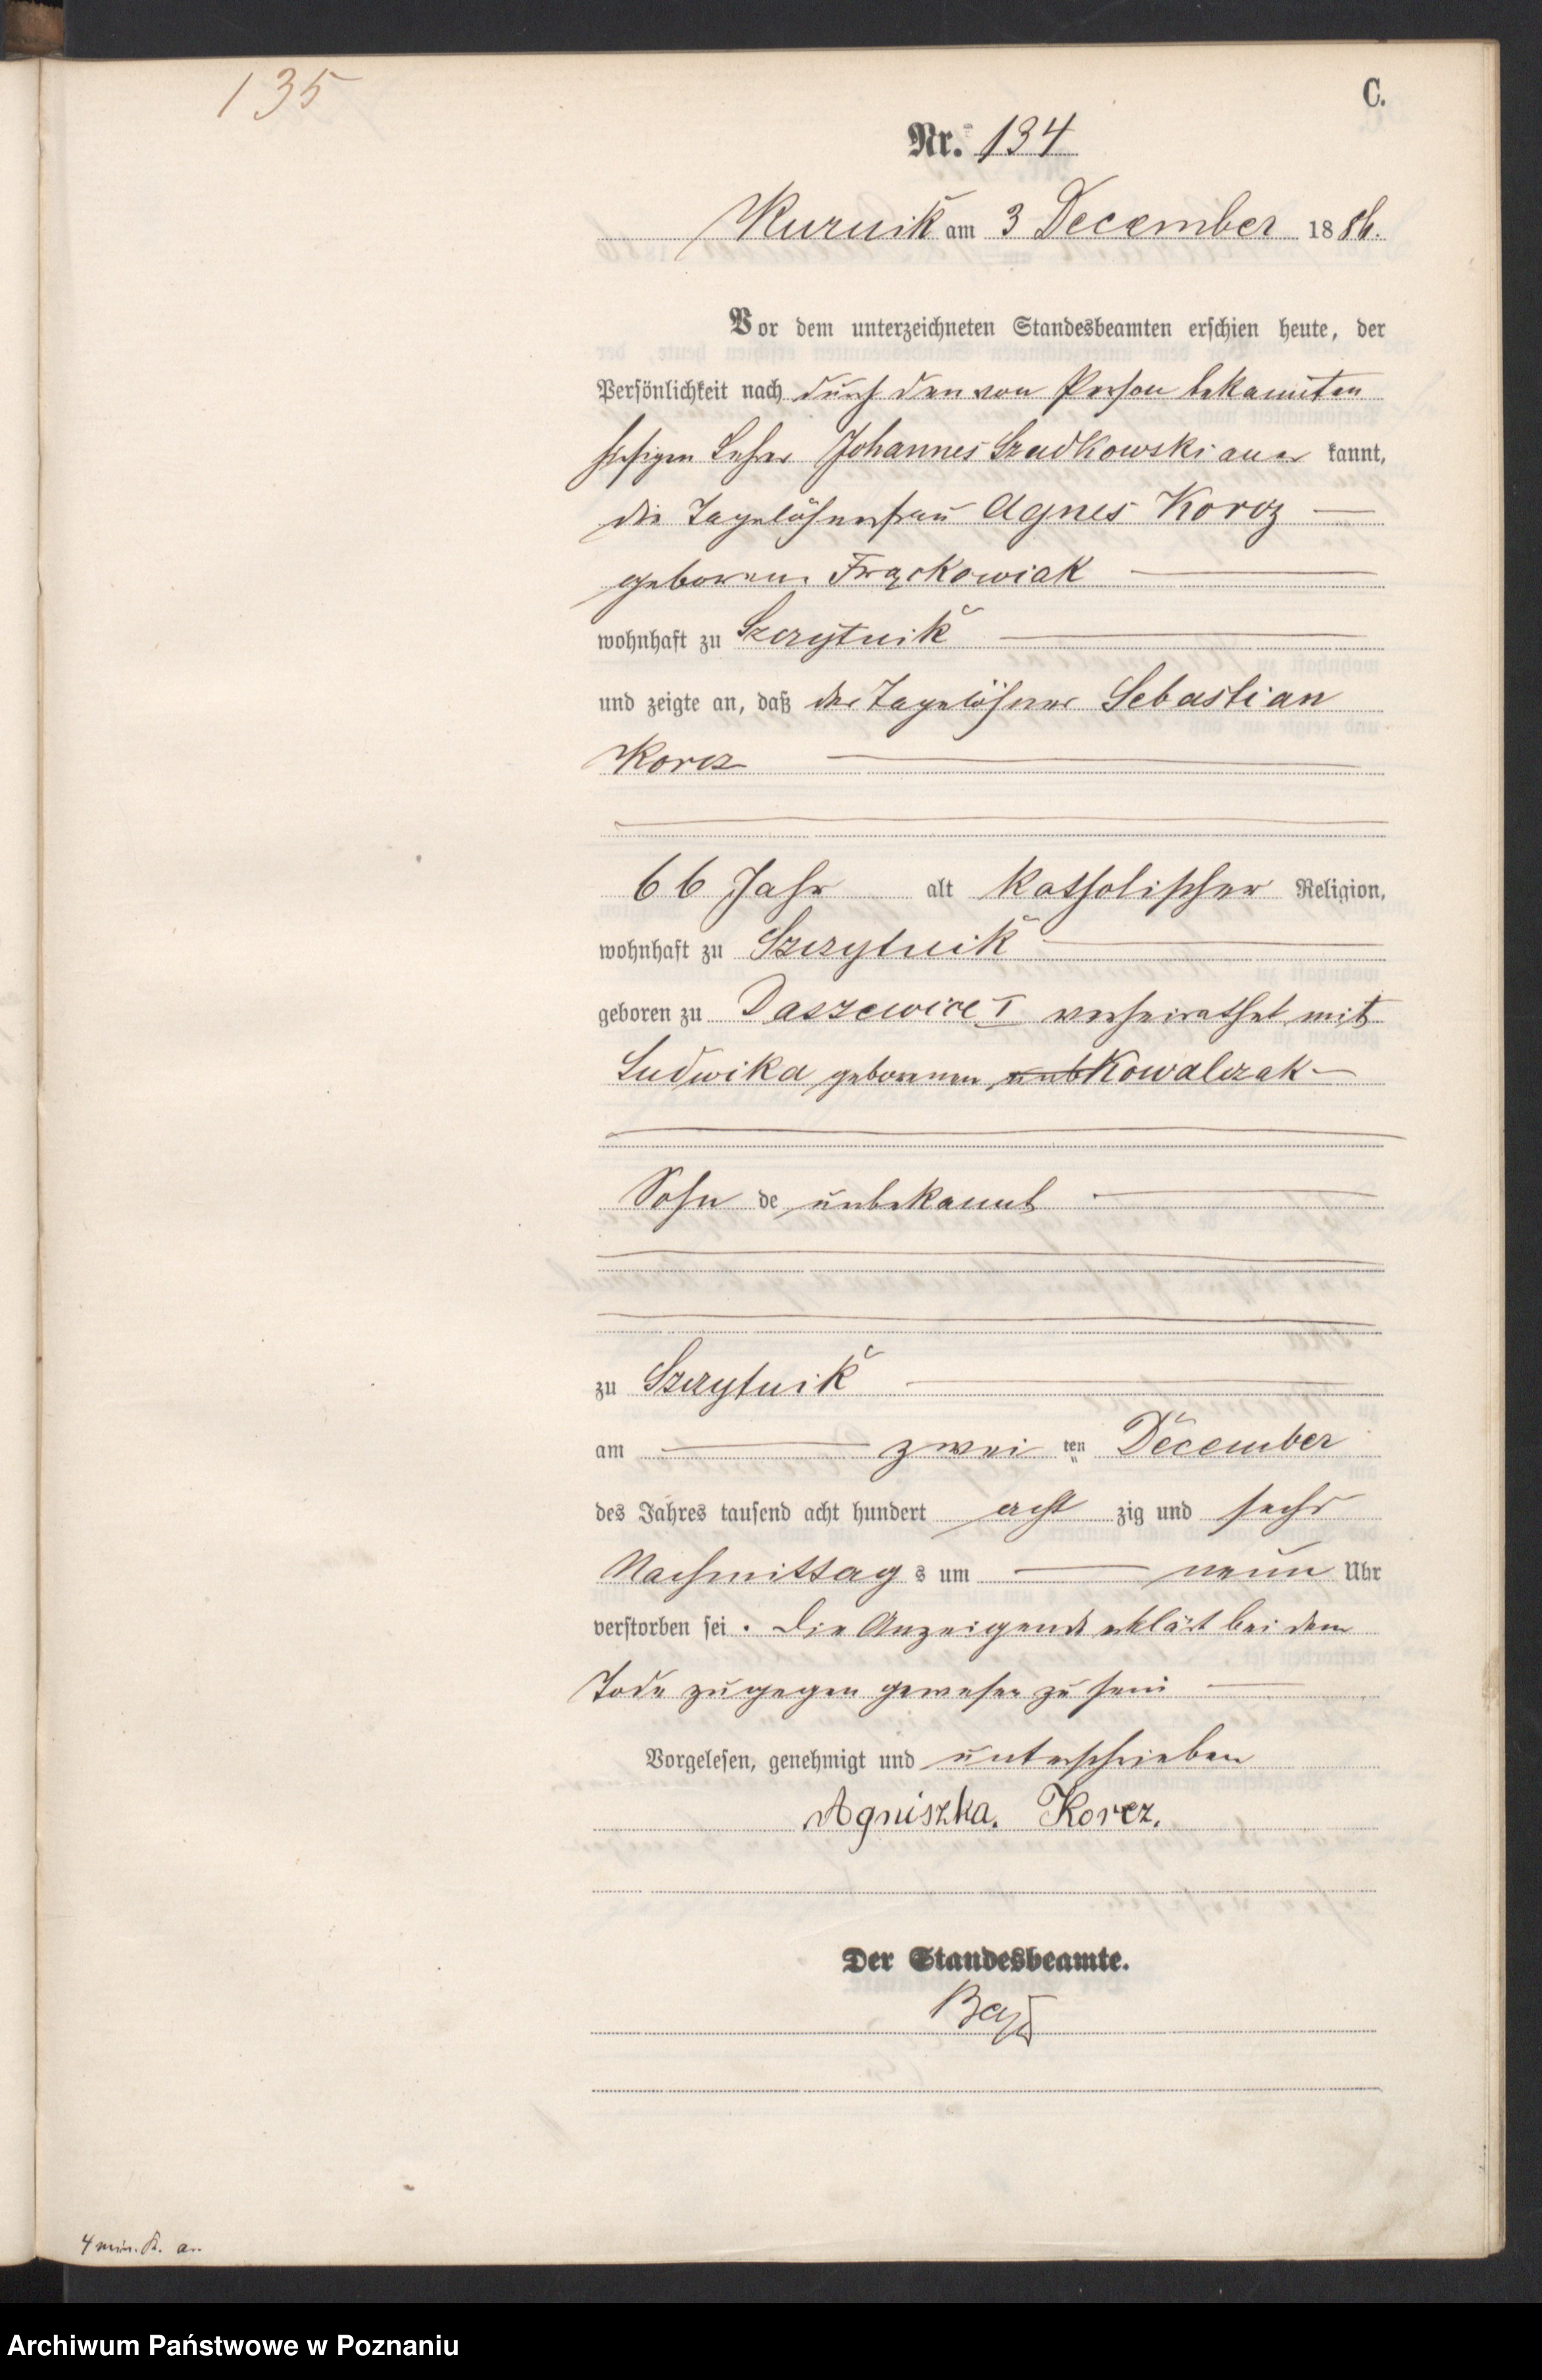 135
C.
Nr. 134
Kurnik am 3 December 1886.
Vor dem unterzeichneten Standesbeamten erschien heute, der
Persönlichkeit nach durch den von Person bekannten
hiesigen Lehrer Johannes Szadkowski aner kannt,
die Tagelöhnerfrau Agnes Korcz
geborene Frąckowiak
wohnhaft zu Szczytnik
und zeigte an, daß der Tagelöhner Sebastian
Korcz
66 Jahr alt katholischer Religion,
wohnhaft zu Szczytnik
geboren zu Daszewice I verheirathet mit
Ludwika geborenen Kowalczak
Sohn de unbekannt
zu Szczytnik
am zwei ten December
des Jahres tausend acht hundert acht zig und sechs
Nachmittag s um neun Uhr
verstorben sei. Die Anzeigende erklärt bei dem
Tode zugegen gewesen zu sein
Vorgelesen, genehmigt und unterschrieben
Agniszka. Korcz.
Der Standesbeamte.
Archiwum Państwowe w Poznaniu